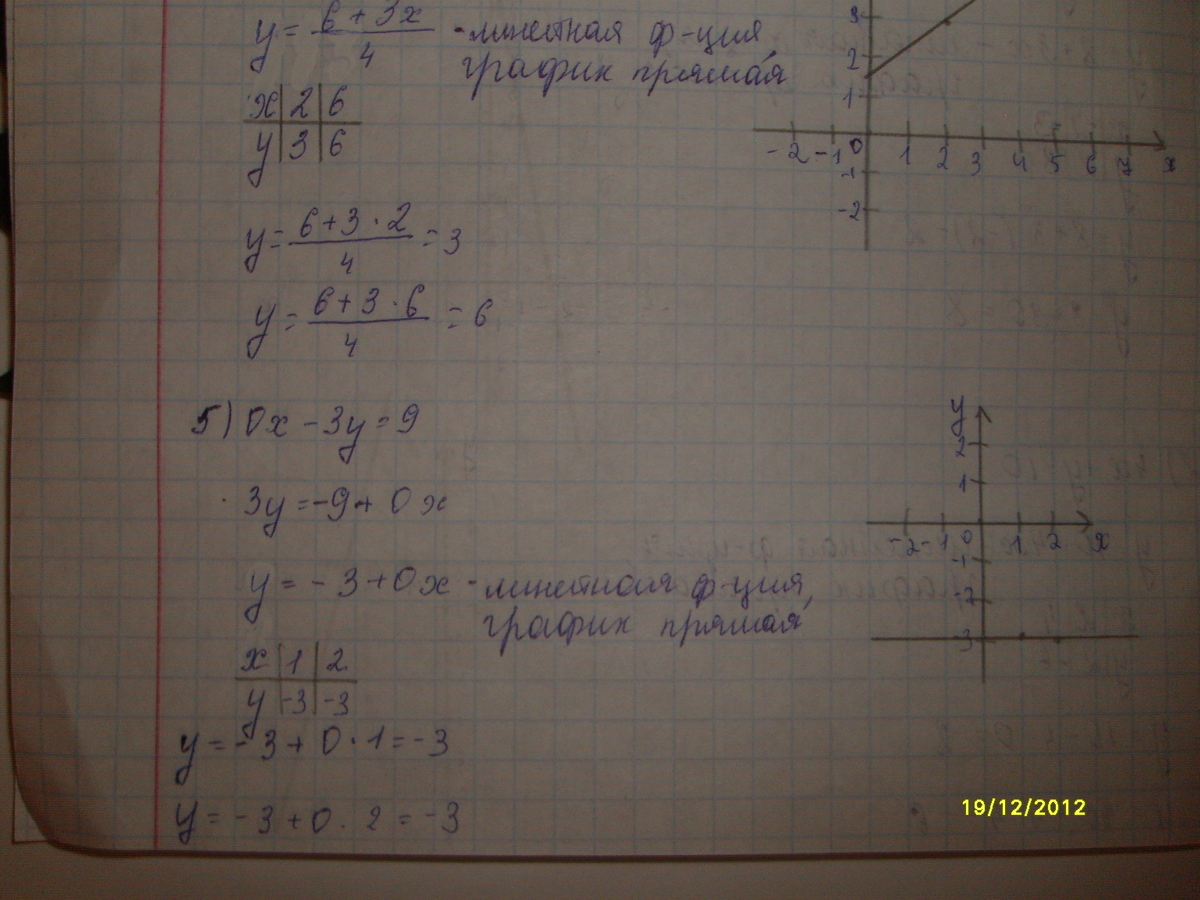 y = (6 + 3x)/4 - линейная ф-ция,
график прямая
x | 2 | 6
y | 3 | 6
y = (6 + 3 · 2)/4 = 3
y = (6 + 3 · 6)/4 = 6
3
2
1
-2 -1 0 1 2 3 4 5 6 7 x
-1
-2
5) 0x - 3y = 9
3y = -9 + 0x
y = -3 + 0x - линейная ф-ция,
график прямая
x | 1 | 2
y | -3 | -3
y = -3 + 0 · 1 = -3
y = -3 + 0 · 2 = -3
y
2
1
-2 -1 0 1 2 x
-1
-2
-3
19/12/2012